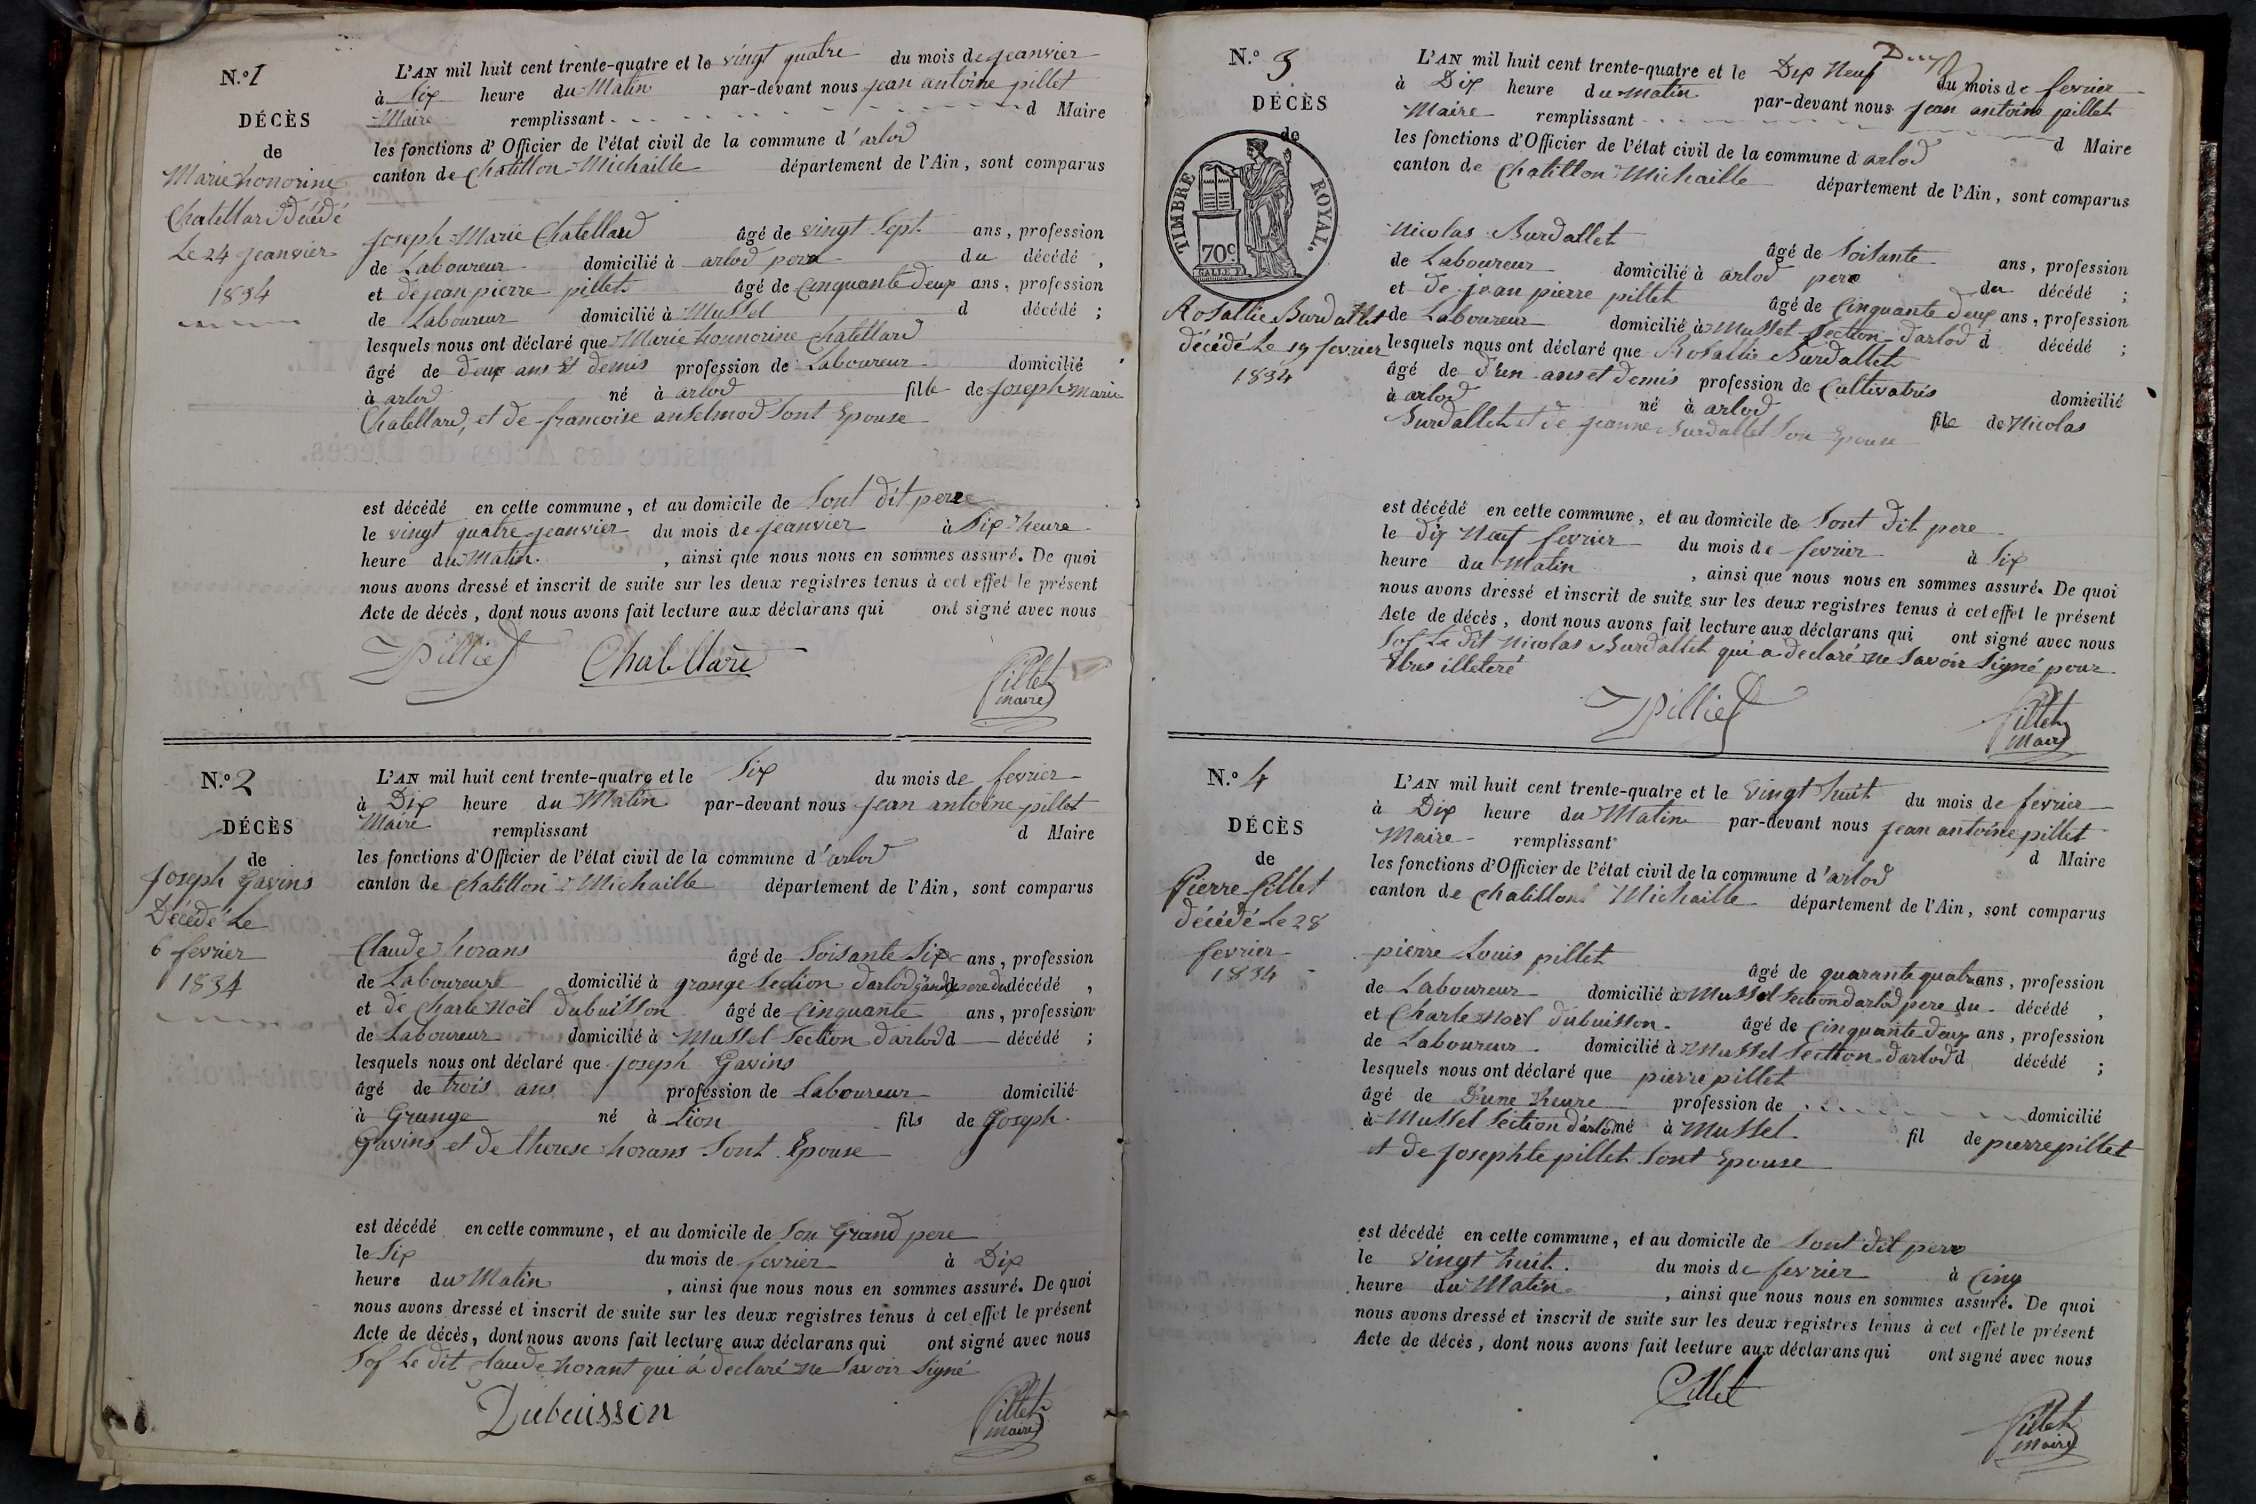 N.o 1
DÉCÈS
de
Marie honorine
Chatellard Décédé
Le 24 jeanvier
1834
L'AN mil huit cent trente-quatre et le vingt quatre du mois de jeanvier
à Six heure du Matin par-devant nous jean antoine pillet
Maire remplissant d Maire
les fonctions d'Officier de l'état civil de la commune d'arlod
canton de Chatillon-Michaille département de l'Ain, sont comparus
Joseph Marie Chatellard âgé de vingt Sept ans, profession
de Laboureur domicilié à arlod pere du décédé,
et de jean pierre pillet âgé de Cinquante deux ans, profession
de Laboureur domicilié à Mussel d décédé;
lesquels nous ont déclaré que Marie honnorine Chatellard
âgé de deux ans et demis profession de Laboureur domicilié
à arlod né à arlod fille de Joseph marie
Chatellard, et de francoise anselmod Sont Epouse
est décédé en cette commune, et au domicile de Sont dit pere
le vingt quatre jeanvier du mois de jeanvier à Six heure
heure du Matin. , ainsi que nous nous en sommes assuré. De quoi
nous avons dressé et inscrit de suite sur les deux registres tenus à cet effet le présent
Acte de décès, dont nous avons fait lecture aux déclarans qui ont signé avec nous
Pilliet Chatellard Pillet
maire
N.o 2
DÉCÈS
de
Joseph Gavins
Décédé Le
6 fevrier
1834
L'AN mil huit cent trente-quatre et le Six du mois de fevrier
à Dix heure du Matin par-devant nous jean antoine pillet
Maire remplissant d Maire
les fonctions d'Officier de l'état civil de la commune d'arlod
canton de Chatillon Michaille département de l'Ain, sont comparus
Claude horans âgé de Soisante Six ans, profession
de Laboureure domicilié à grange Section darlod grand pere du décédé,
et de Charle Noël dubuisson âgé de Cinquante ans, profession
de Laboureur domicilié à Mussel Section darlod d décédé;
lesquels nous ont déclaré que Joseph Gavins
âgé de trois ans profession de Laboureur domicilié
à Grange né à Lion fils de Joseph
Gavins et de therese horans Sont Epouse
est décédé en cette commune, et au domicile de Son Grand pere
le Six du mois de fevrier à Dix
heure du Matin , ainsi que nous nous en sommes assuré. De quoi
nous avons dressé et inscrit de suite sur les deux registres tenus à cet effet le présent
Acte de décès, dont nous avons fait lecture aux déclarans qui ont signé avec nous
Sof Le dit Claude horant qui a declaré ne Savoir Signé
Dubuisson Pillet
maire
N.o 3
DÉCÈS
de
TIMBRE ROYAL.
70c
Rosallie Burdallet
décédé Le 19 fevrier
1834
L'AN mil huit cent trente-quatre et le Dix Neuf du mois de fevrier
à Dix heure du matin par-devant nous jean antoine pillet
Maire remplissant d Maire
les fonctions d'Officier de l'état civil de la commune d arlod
canton de Chatillon Michaille département de l'Ain, sont comparus
Nicolas Burdallet âgé de Soisante ans, profession
de Laboureur domicilié à arlod pere du décédé;
et de jean pierre pillet âgé de Cinquante deux ans, profession
de Laboureur domicilié à Mussel Section darlod d décédé;
lesquels nous ont déclaré que Rosallie Burdallet
âgé de d'un ans et demis profession de Cultivatris domicilié
à arlod né à arlod file de Nicolas
Burdallet et de jeanne Burdallet Son Epouse
est décédé en cette commune, et au domicile de Sont dit pere
le dix Neuf fevrier du mois de fevrier à Six
heure du Matin , ainsi que nous nous en sommes assuré. De quoi
nous avons dressé et inscrit de suite sur les deux registres tenus à cet effet le présent
Acte de décès, dont nous avons fait lecture aux déclarans qui ont signé avec nous
Sof Le dit Nicolas Burdallet qui a declaré ne Savoir Signé pour
illeteré
Pilliet Pillet
maire
N.o 4
DÉCÈS
de
Pierre Pillet
décédé Le 28
fevrier
1834
L'AN mil huit cent trente-quatre et le Vingt huit du mois de fevrier
à Dix heure du Matin par-devant nous jean antoine pillet
Maire remplissant d Maire
les fonctions d'Officier de l'état civil de la commune d'arlod
canton de Chatillon Michaille département de l'Ain, sont comparus
pierre Louis pillet âgé de quarante quatre ans, profession
de Laboureur domicilié à Mussel Section darlod pere du décédé,
et Charle Noel dubuisson âgé de Cinquante deux ans, profession
de Laboureur domicilié à Mussel Section darlod d décédé;
lesquels nous ont déclaré que pierre pillet
âgé de D'une heure profession de domicilié
à Mussel Section d'arlod né à Mussel fil de pierre pillet
et de Josephte pillet Sont Epouse
est décédé en cette commune, et au domicile de Sont dit pere
le vingt huit du mois de fevrier à Cinq
heure du Matin , ainsi que nous nous en sommes assuré. De quoi
nous avons dressé et inscrit de suite sur les deux registres tenus à cet effet le présent
Acte de décès, dont nous avons fait lecture aux déclarans qui ont signé avec nous
Pillet Pillet
maire